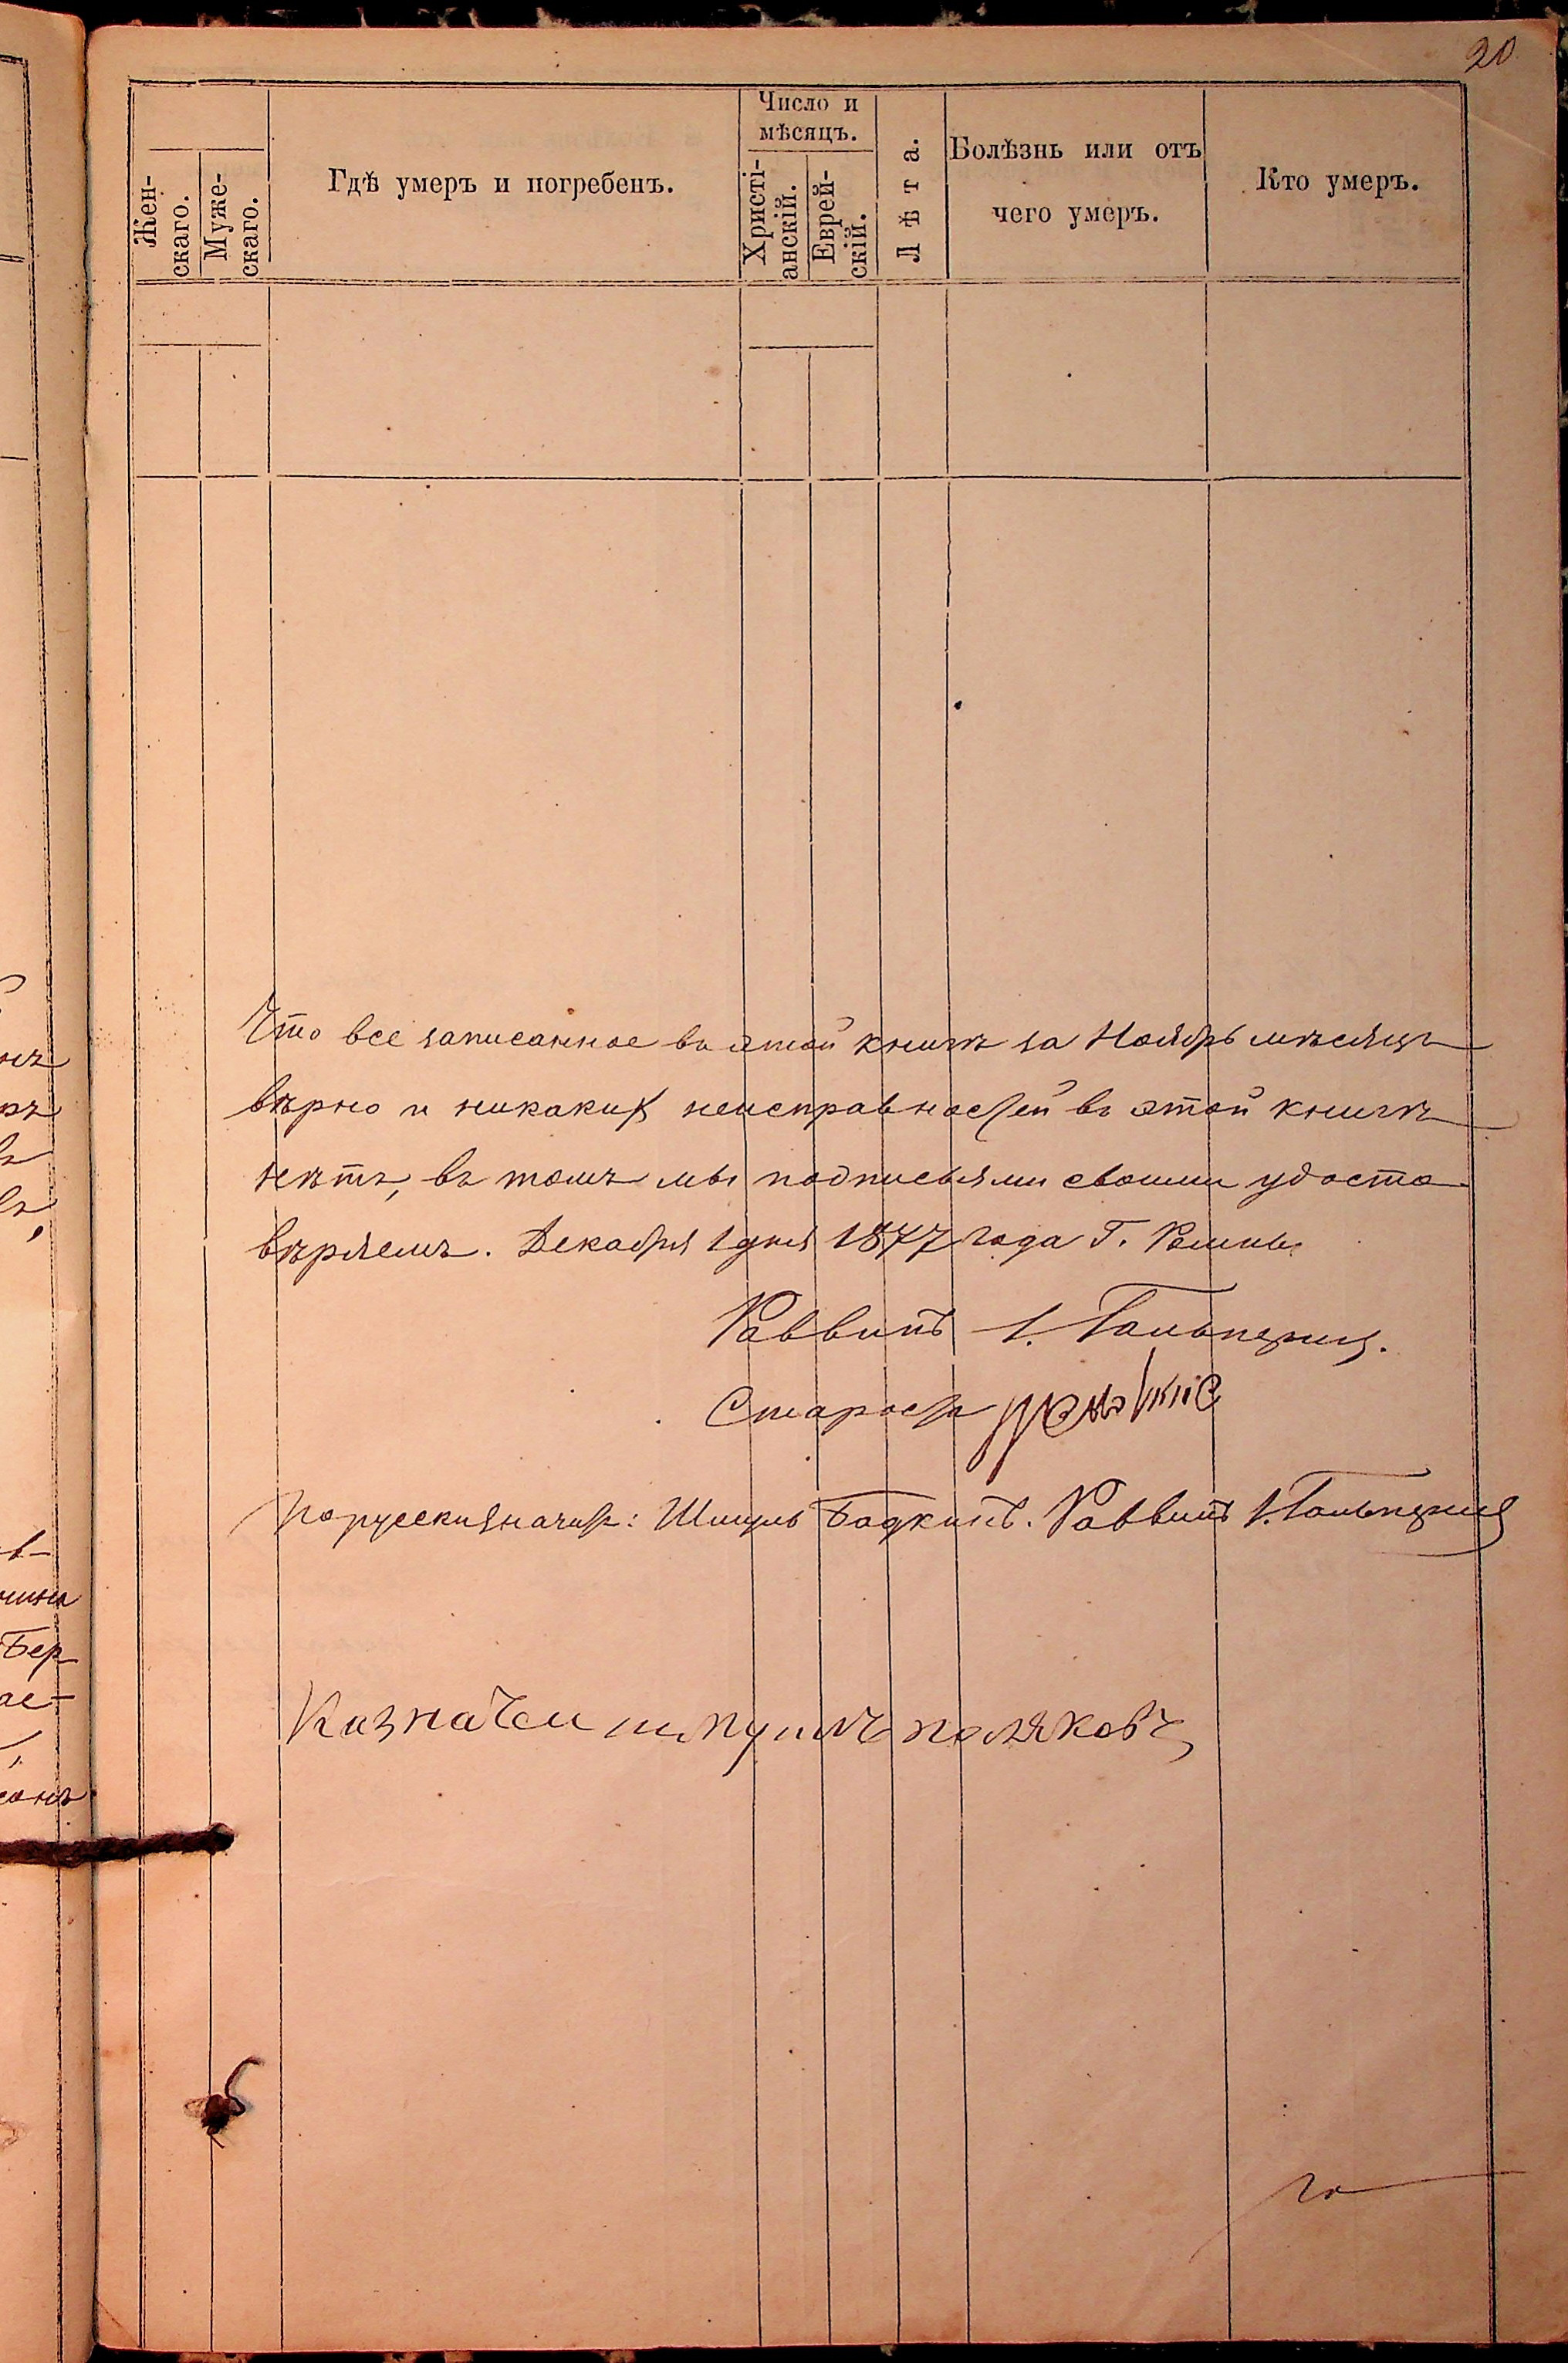 20
Жен-
скаго.
Муже-
скаго.
Гдѣ умеръ и погребенъ.
Число и
мѣсяцъ.
Христі-
анскій.
Еврей-
скій.
Лѣта.
Болѣзнь или отъ
чего умеръ.
Кто умеръ.
Что все записанное въ этой книгѣ за Ноябрь мѣсяцъ
вѣрно и никакихъ неисправностей въ этой книгѣ
нѣтъ, въ томъ мы подписьями своими удосто
вѣряемъ. Декабря 1 дня 1877 года Г. Ромны
Раввинъ I. Гальперинъ.
Староста
По русски значитъ: Раввинъ I. Гальперинъ
Казначеи Поляковъ
Бер